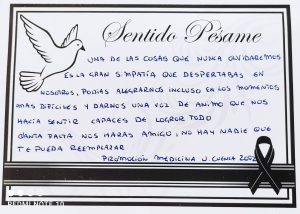 Sentido Pésame
UNA DE LAS COSAS QUE NUNCA OLVIDAREMOS
ES LA GRAN SIMPATÍA QUE DESPERTABAS EN
NOSOTROS, PODÍAS ALEGRARNOS INCLUSO EN LOS MOMENTOS
MAS DIFÍCILES Y DARNOS UNA VOZ DE ANIMO QUE NOS
HACÍA SENTIR CAPACES DE LOGRAR TODO
CUANTA FALTA NOS HARAS AMIGO, NO HAY NADIE QUE
TE PUEDA REEMPLAZAR
PROMOCIÓN MEDICINA U CUENCA 2002
REDMI NOTE 10